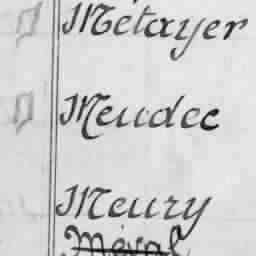 Métayer
Meudec
Meury
Méval